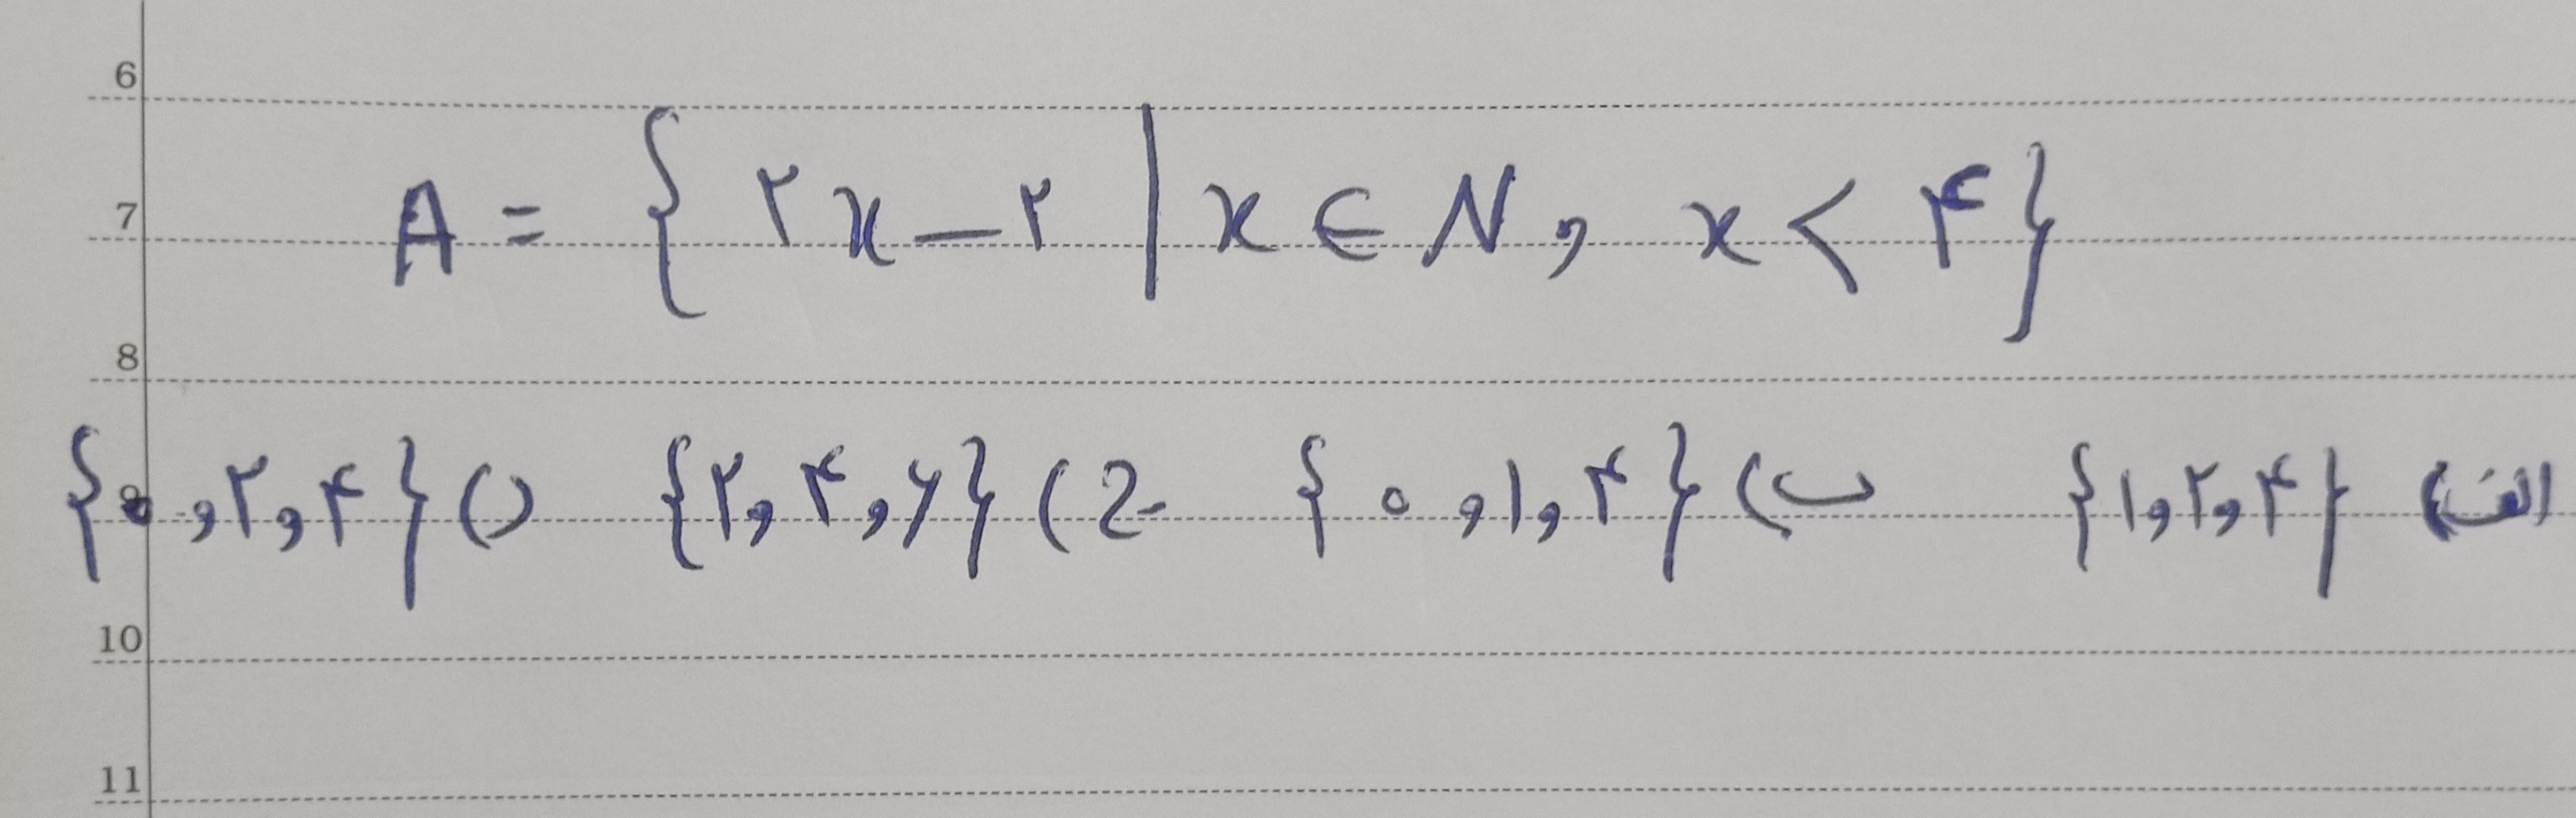 6
7 A = { ۲x - ۲ | x ∈ N , x < ۴ }
8
9 الف) {۱,۲,۴} ب) {۰,۱,۴} ج) {۲,۴,۶} د) {۰,۲,۴}
10
11